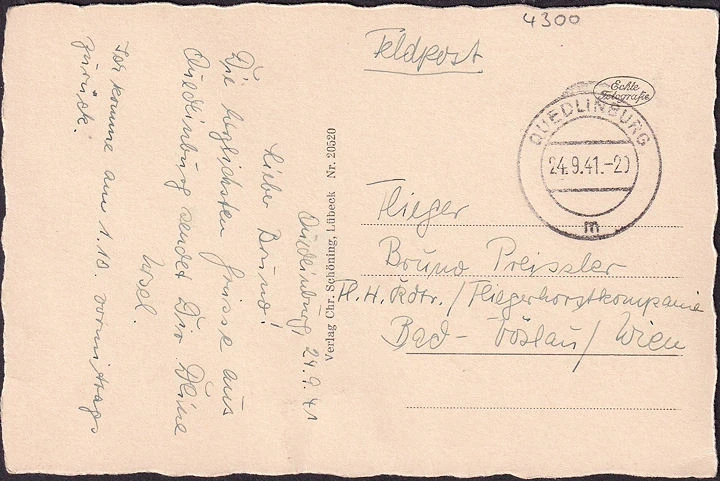 4300
Feldpost
Echte
Fotografie
QUEDLINBURG
24.9.41.-20
m
Quedlinburg, 24.9.41
Lieber Bruno!
Die herzlichsten Grüsse aus
Quedlinburg sendet Dir Deine
Ursel.
Ich komme am 1.10. vormittags
zurück.
Verlag Chr. Schöning, Lübeck Nr. 20520
Flieger
Bruno Preissler
Fl. H. Kdtr. / Fliegerhorstkompanie
Bad-Vöslau / Wien